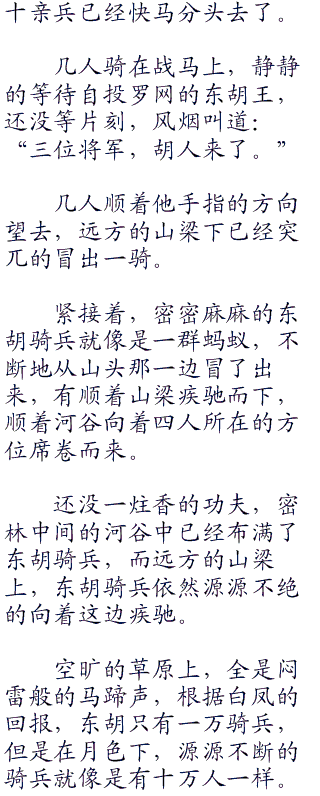 十亲兵已经快马分头去了。
几人骑在战马上，静静
的等待自投罗网的东胡王，
还没等片刻，风烟叫道：
“三位将军，胡人来了。”
几人顺着他手指的方向
望去，远方的山梁下已经突
兀的冒出一骑。
紧接着，密密麻麻的东
胡骑兵就像是一群蚂蚁，不
断地从山头那一边冒了出
来，有顺着山梁疾驰而下，
顺着河谷向着四人所在的方
位席卷而来。
还没一炷香的功夫，密
林中间的河谷中已经布满了
东胡骑兵，而远方的山梁
上，东胡骑兵依然源源不绝
的向着这边疾驰。
空旷的草原上，全是闷
雷般的马蹄声，根据白凤的
回报，东胡只有一万骑兵，
但是在月色下，源源不断的
骑兵就像是有十万人一样。